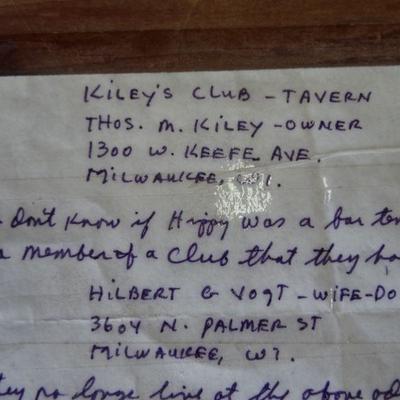 KILEY'S CLUB - TAVERN
THOS. M. KILEY - OWNER
1300 W. KEEFE AVE.
MILWAUKEE, WI.
don't know if Hippy was a bar ten
a member of a club that they ha
HILBERT G VOGT - WIFE - DO
3604 N. PALMER ST
MILWAUKEE, WI.
they no longer live at the above ad